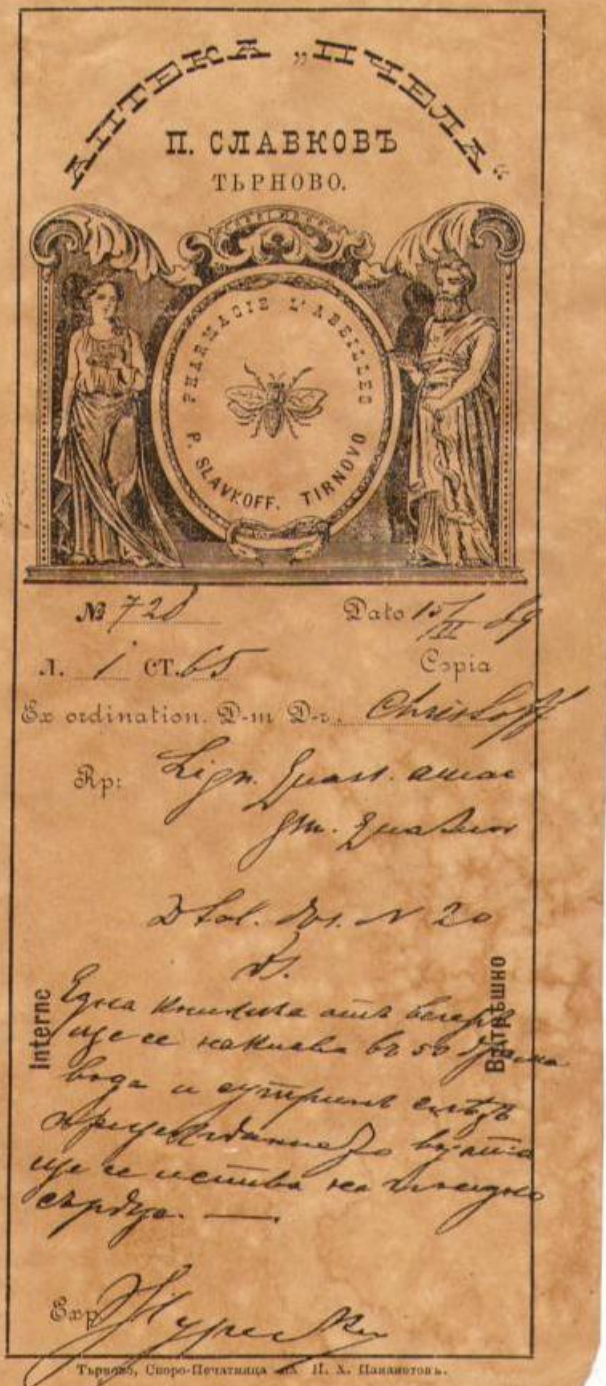 АПТЕКА „ПЧЕЛА“
П. СЛАВКОВЪ
ТЪРНОВО.
PHARMACIE L'ABEILLES
P. SLAVKOFF. TIRNOVO
№ 728 Dato 15/II 89
Л. 1 СТ. 65 Copia
Ex ordination. D-m D-r. Christoff
Rp: Lign. Quass. amar
gm. Quatuor
D tal. dos. N 20
S.
Interne
Вѫтрѣшно
Една книжка отъ вечерь
ще се накисва въ 50 грама
вода и сутринь слѣдъ
ще се испива на гладно
сърдце. —
Exp
Търново, Скоро-Печатница на П. Х. Панайотовъ.